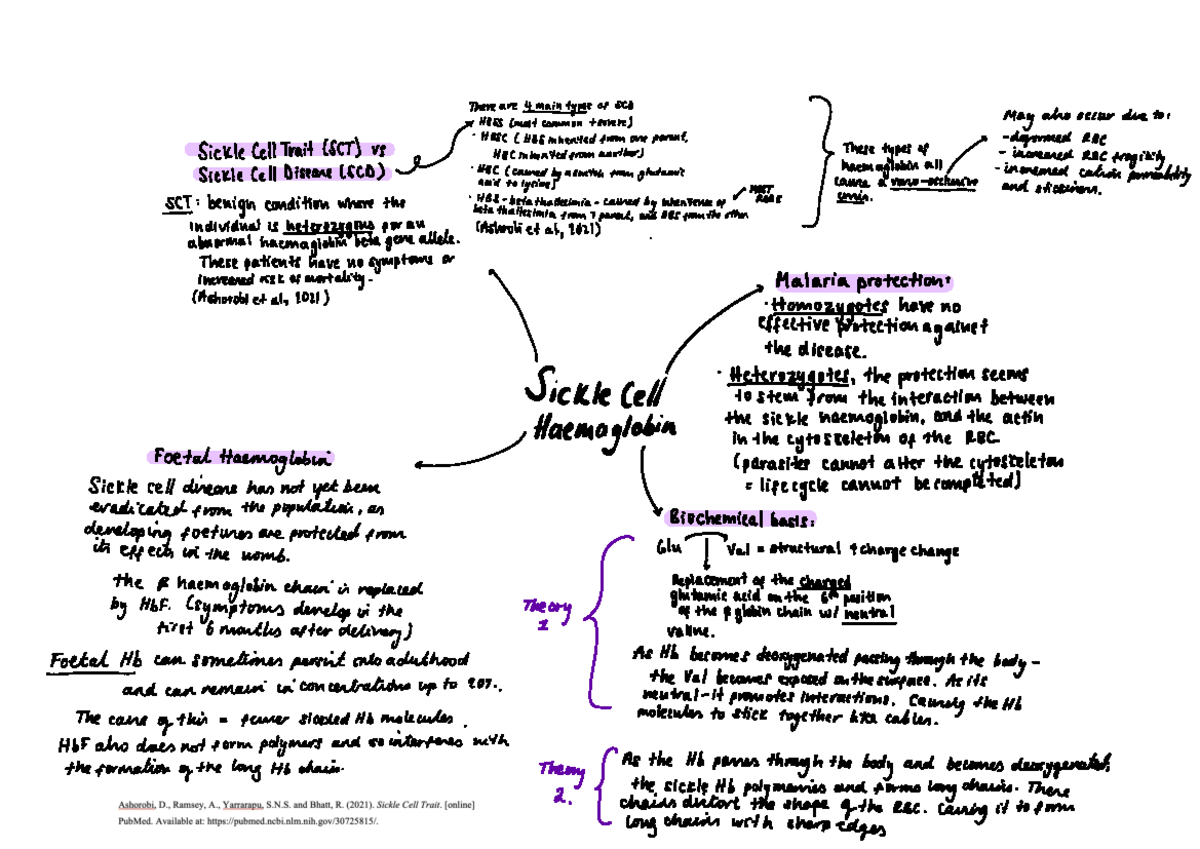 Sickle Cell Trait (SCT) vs
Sickle Cell Disease (SCD)
SCT: benign condition where the
individual is heterozygous for an
abnormal haemoglobin beta gene allele.
These patients have no symptoms or
increased risk of mortality.
(Ashorobi et al, 2021)
There are 4 main types of SCD
HBSS (most common + severe)
· HBSC (HBS inherited from one parent,
HBC inherited from another)
· HBC (caused by a switch from glutamic
acid to lysine)
· HBS-beta thallesimia - caused by inheritence of
beta thallesimia from 1 parent, and HBS from the other
(Ashrobi et al, 2021)
MOST
RARE
These types of
haemoglobin all
cause a vaso-occlusive
crisis.
May also occur due to:
- deformed RBC
- increased RBC fragility
- increased cation permeability
and stickiness.
Sickle Cell
Haemoglobin
Malaria protection:
· Homozygotes have no
effective protection against
the disease.
· Heterozygotes, the protection seems
to stem from the interaction between
the sickle haemoglobin, and the actin
in the cytoskeleton of the RBC
(parasites cannot alter the cytoskeleton
= lifecycle cannot be completed)
Foetal Haemoglobin
Sickle cell disease has not yet been
eradicated from the population, as
developing foetuses are protected from
its effects in the womb.
the β haemoglobin chain is replaced
by HbF. (symptoms develop in the
first 6 months after delivery)
Foetal Hb can sometimes persist into adulthood
and can remain in concentrations up to 20%.
The cause of this = fewer sickled Hb molecules.
HbF also does not form polymers and so interferes with
the formation of the long Hb chain.
Biochemical basis:
Glu Val = structural + charge change
Replacement of the charged
glutamic acid on the 6th position
of the β globin chain w/ neutral
valine.
Theory
1
As Hb becomes deoxygenated passing through the body -
the Val becomes exposed on the surface. As its
neutral - it promotes interactions. Causing the Hb
molecules to stick together like cables.
Theory
2.
As the Hb passes through the body and becomes deoxygenated,
the sickle Hb polymerises and forms long chains. These
chains distort the shape of the RBC. Causing it to form
long chains with sharp edges
Ashorobi, D., Ramsey, A., Yarrarapu, S.N.S. and Bhatt, R. (2021). Sickle Cell Trait. [online]
PubMed. Available at: https://pubmed.ncbi.nlm.nih.gov/30725815/.